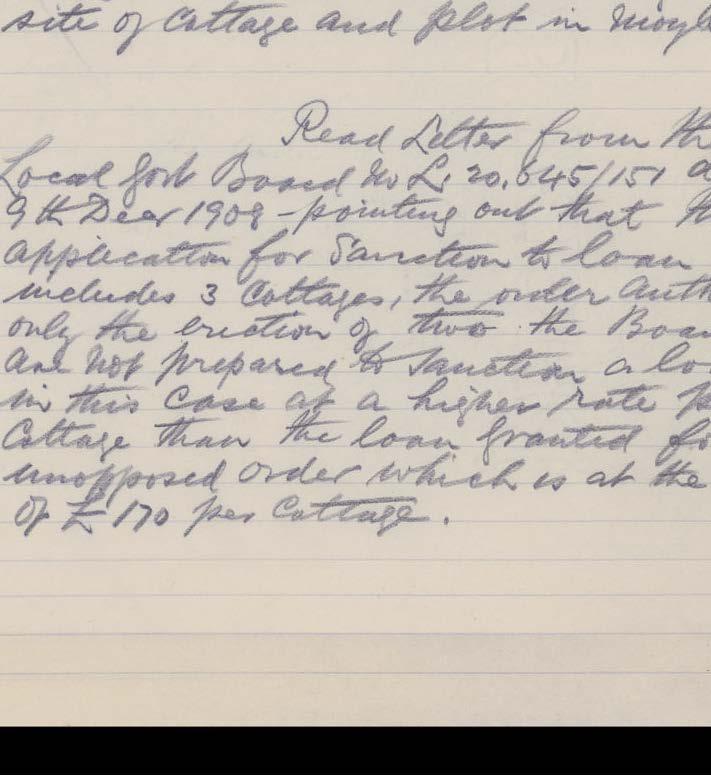 site of Cottage and plot in Moyl
Read Letter from th
Local Govt Board No L. 20.645/151 d
9th Decr 1908 - pointing out that th
application for Sanction to loan
includes 3 Cottages, the order auth
only the erection of two. the Boar
are not prepared to Sanction a lo
in this case at a higher rate p
Cottage than the loan granted fo
unopposed order which is at the
of £170 per Cottage.